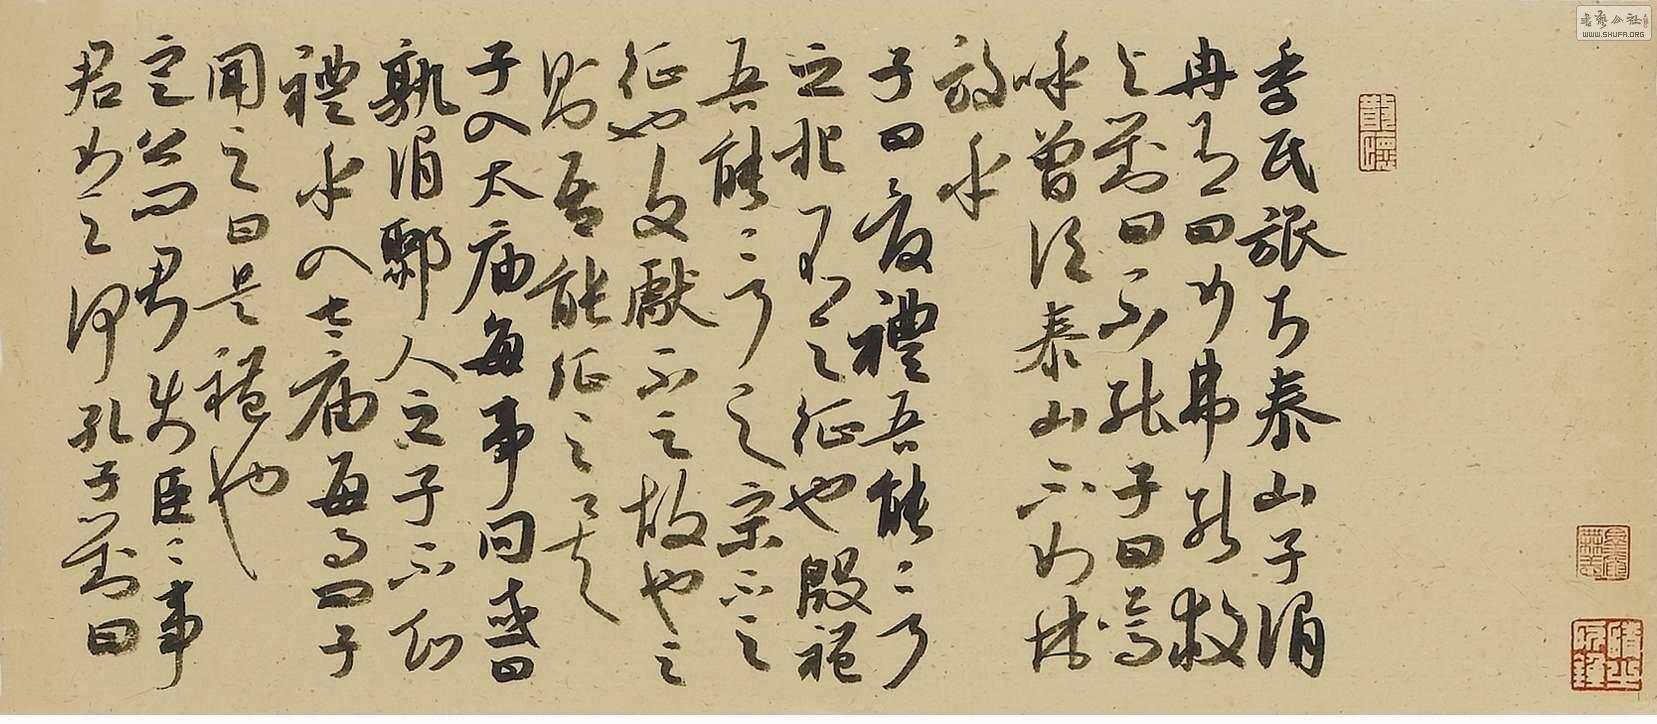 季氏旅於泰山子謂
冉有曰女弗能救
與對曰不能子曰嗚
呼曾謂泰山不如林
放乎
子曰夏禮吾能言
之杞不足征也殷禮
吾能言之宋不足
征也文獻不足故也足
則吾能征之矣
子入太廟每事問或曰
孰謂鄹人之子不知
禮乎入太廟每事問子
聞之曰是禮也
定公問君使臣臣事
君如之何孔子對曰
WWW.SHUFA.ORG